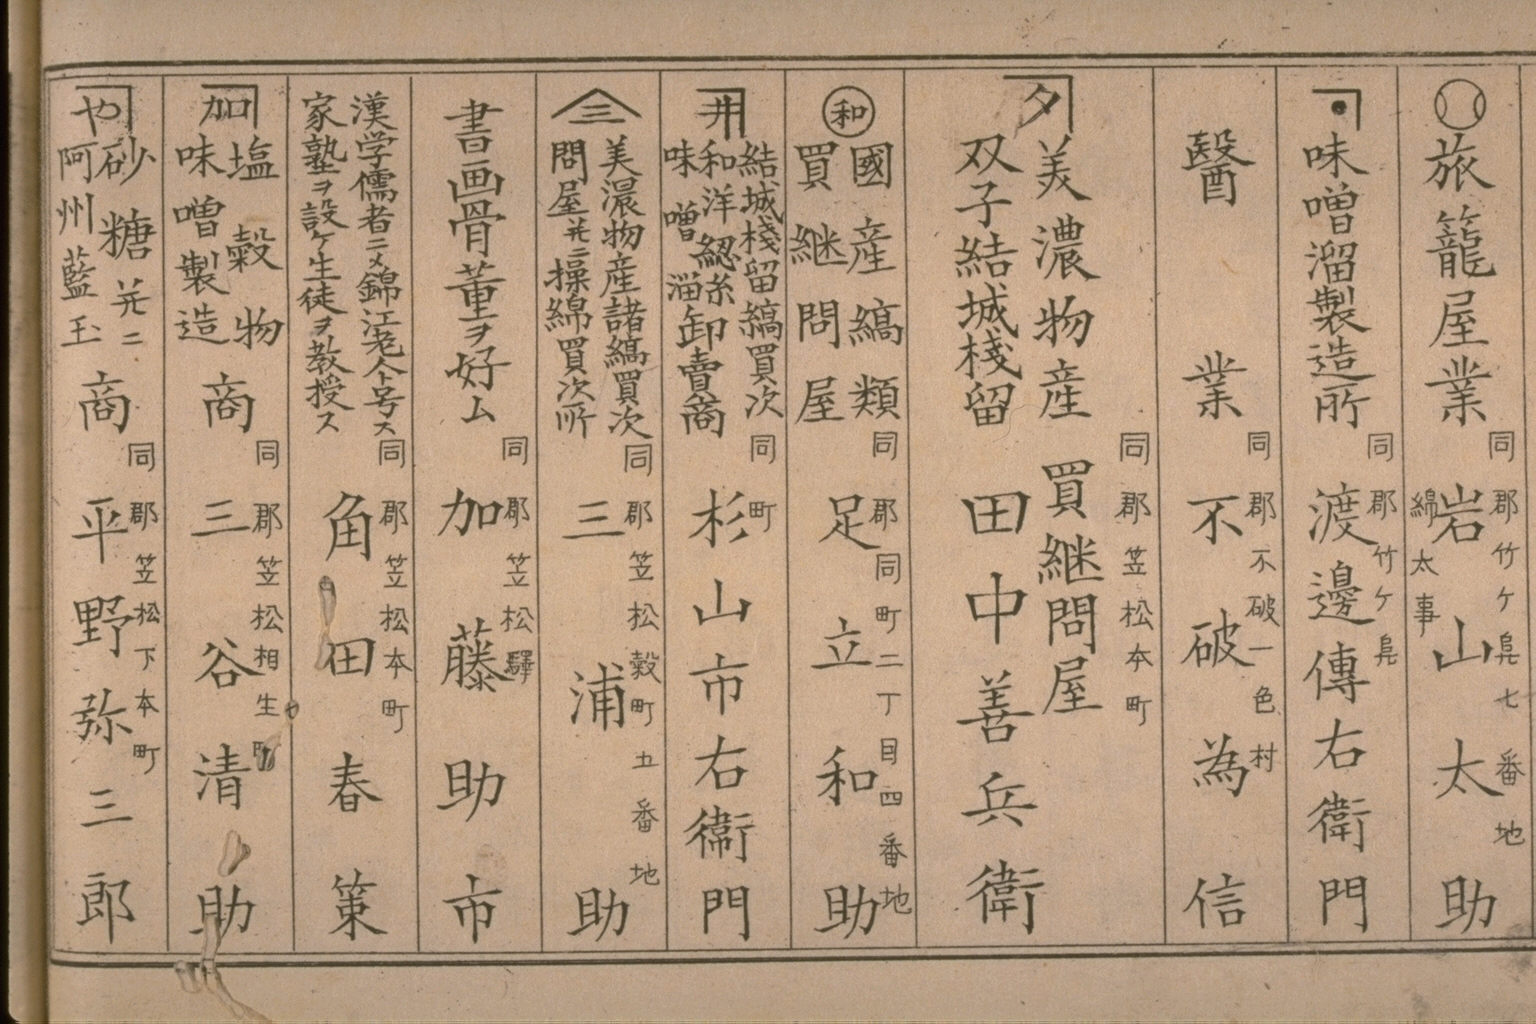 旅籠屋業
同郡竹ケ鼻七番地
綿太事
岩山太助
味噌溜製造所
同郡竹ケ鼻
渡邊傳右衛門
醫業
同郡不破一色村
不破為信
夕
美濃物産買継問屋
双子結城棧留
同郡笠松本町
田中善兵衛
和
國産縞類
買継問屋
同郡同町二丁目四番地
足立和助
井
結城棧留縞買次
和洋綛糸卸賣商
味噌溜
同町
杉山市右衛門
三
美濃物産諸縞買次
問屋並ニ操綿買次所
同郡笠松穀町五番地
三浦助
書画骨董ヲ好ム
同郡笠松驛
加藤助市
漢学儒者ニメ錦江老人ト号ス
家塾ヲ設ケ生徒ヲ教授ス
同郡笠松本町
角田春策
加
塩穀物商
味噌製造
同郡笠松相生町
三谷清助
や
砂糖並ニ
阿州藍玉商
同郡笠松下本町
平野弥三郎